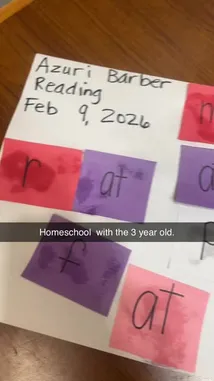 Azuri Barber
Reading
Feb 9, 2026
r at
Homeschool with the 3 year old.
f
at